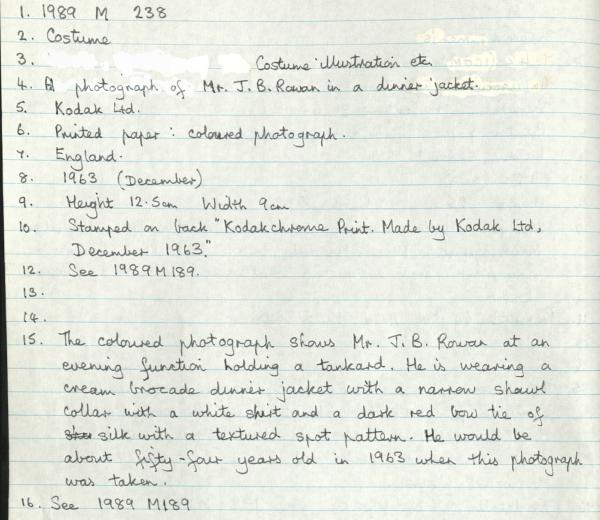 1. 1989 M 238
2. Costume
3. Costume illustration etc.
4. A photograph of Mr. J. B. Rowan in a dinner jacket.
5. Kodak Ltd.
6. Printed paper : coloured photograph.
7. England.
8. 1963 (December)
9. Height 12.5cm Width 9cm
10. Stamped on back "Kodakchrome Print. Made by Kodak Ltd,
December 1963."
12. See 1989 M 189.
13.
14.
15. The coloured photograph shows Mr. J. B. Rowan at an
evening function holding a tankard. He is wearing a
cream brocade dinner jacket with a narrow shawl
collar with a white shirt and a dark red bow tie of
silk with a textured spot pattern. He would be
about fifty-four years old in 1963 when this photograph
was taken.
16. See 1989 M189